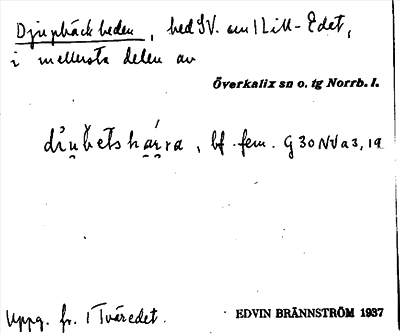 Djupbäckheden, hed SV. om 1 Lill-Edet,
i mellersta delen av
Överkalix sn o. tg Norrb. l.
bf. fem. G 30 NV a 3, 19
Uppg. fr. 1 Tväredet.
EDVIN BRÄNNSTRÖM 1937